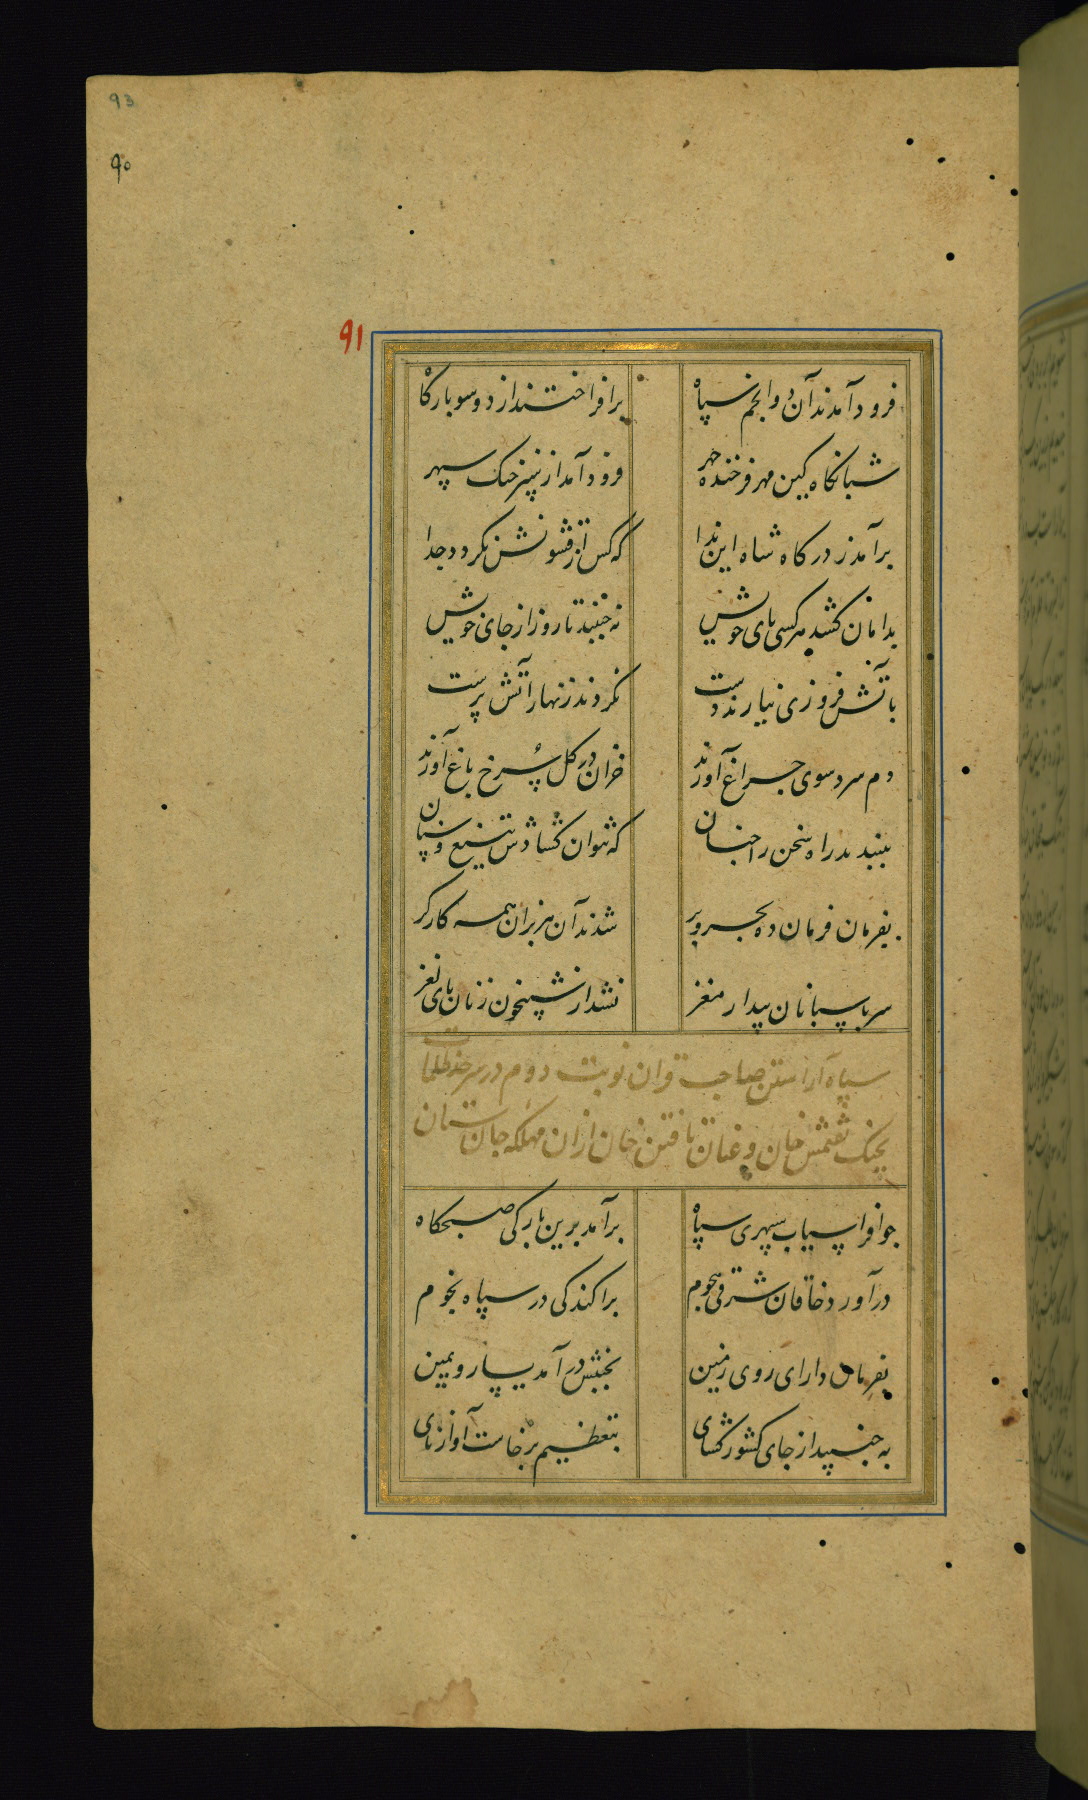 93
90
91
فرود آمدند آن دو انجم سپاه برافراختند از دو سو بارگاه
شبانگاه کین مهر فرخنده چهر فرود آمد از نیز خنک سپهر
برآمد ز درگاه شاه این ندا که کس از قشونش نکردد جدا
بدامان کشد هر کسی پای خویش نه جنبد تا روز از جای خویش
بآتش فروزی نیارند دست نکردند زنهار آتش پرست
دم سرد سوی چراغ آورند خزان در کل سرخ باغ آورند
ببندید راه سخن را چنان که نتوان کشادش بتیغ و سنان
بفرمان فرمان ده بحر و بر شدند آن هزبران همه کارکر
سر پاسبانان بیدار مغز نشد از شبیخون زنان پای نغز
سپاه آراستن صاحب قران نوبت دوم در سرحد ظلمات
بجنک تقتمش خان و عنان تافتن خان ازان مهلکه جان ستان
چو افراسیاب سپهری سپاه برآمد برین بارکی صبحکاه
درآورد خاقان شرقی هجوم پراکندکی در سپاه نجوم
بفرمان دارای روی زمین بجنبش درآمد یسار و یمین
به جنبید از جای کشورکشای بتعظیم برخاست آواز نای